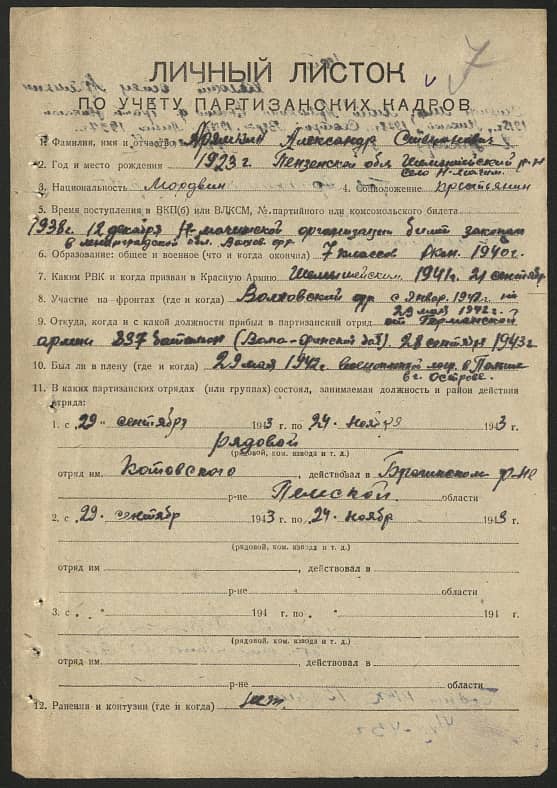 7
ЛИЧНЫЙ ЛИСТОК
ПО УЧЕТУ ПАРТИЗАНСКИХ КАДРОВ
1. Фамилия, имя и отчество Александр Степанович
2. Год и место рождения 1923 г. Пензенской обл Шемышейский р-н
село
3. Национальность Мордвин 4. Соцположение Крестьянин
5. Время поступления в ВКП(б) или ВЛКСМ, № партийного или комсомольского билета
1938г. 12 декабря организации билет закопан
в ленинградской обл.
6. Образование: общее и военное (что и когда окончил) 7 классов 1940г.
7. Каким РВК и когда призван в Красную Армию Шемышейским 1941г. 21 сентября
8. Участие на фронтах (где и когда) Волховский фр с Январ. 1942г. по
29 мая 1942г.
9. Откуда, когда и с какой должности прибыл в партизанский отряд от Германской
армии 837 батальон (Волго-финской бат). 28 сентября 1943г
10. Был ли в плену (где и когда) 29 мая 1942г. лаг.
в г. Острове.
11. В каких партизанских отрядах (или группах) состоял, занимаемая должность и район действия
отряда:
1. с 29 " сентября 1943 г. по 24 " ноября 1943 г.
рядовой
(рядовой, ком. взвода и т. д.)
отряд им. Котовского, действовал в Брагинском р-не
р-не области
2. с 29 " сентябр 1943 г. по 24 " ноябр 1943 г.
(рядовой, ком. взвода и т. д.)
отряд им , действовал в
р-не области
3. с " 194 г. по " 194 г.
(рядовой, ком. взвода и т. д.)
отряд им. , действовал в
р-не области
12. Ранения и контузии (где и когда) нет.